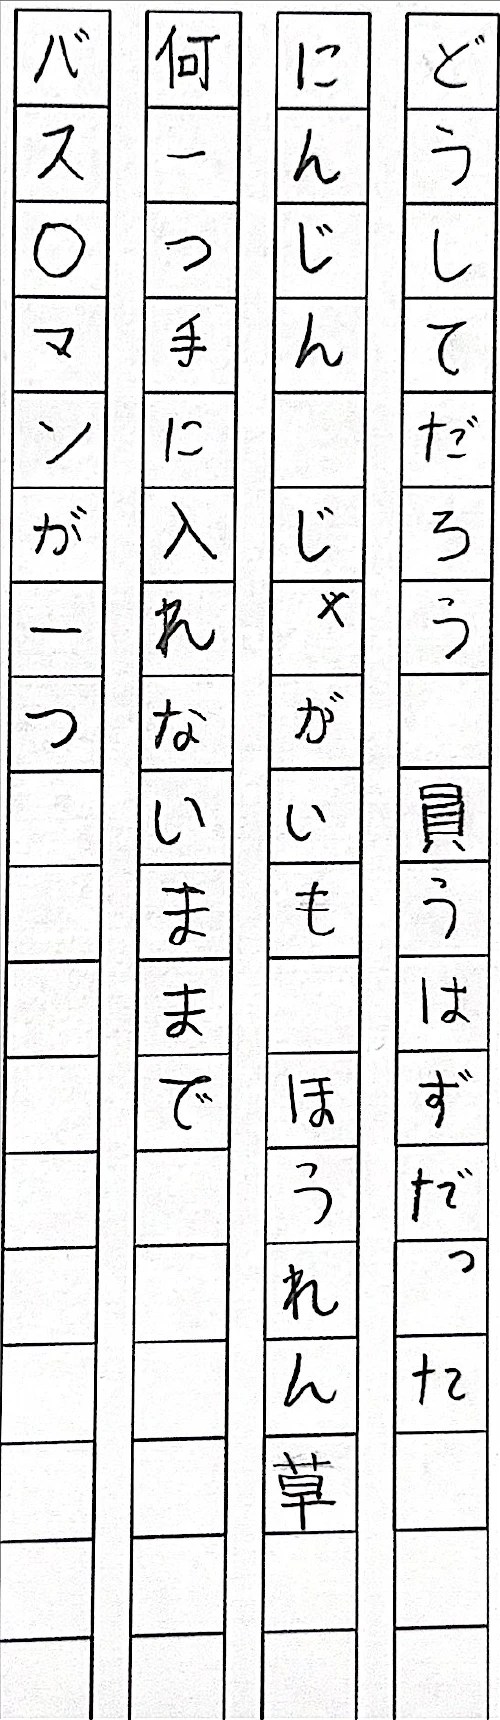 どうしてだろう　員うはずだった
にんじん　じゃがいも　ほうれん草
何一つ手に入れないままで
バス〇マンが一つ